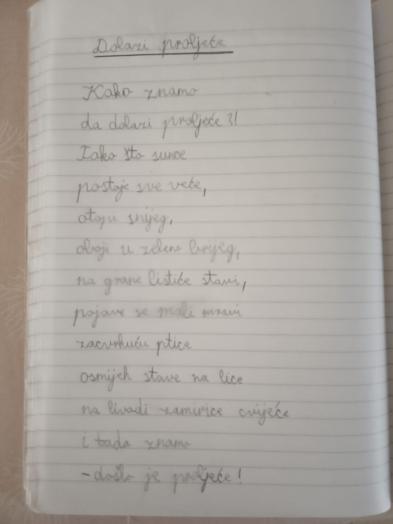 Dolazi proljeće
Kako znamo
da dolazi proljeće?!
Tako što sunce
postaje sve veće,
otopi snijeg,
oboji u zeleno brijeg,
na grane listiće stavi,
pojave se mali mravi
zacvrkuću ptice
osmijeh stave na lice
na livadi zamirise cvijeće
i tada znamo
- došlo je proljeće!